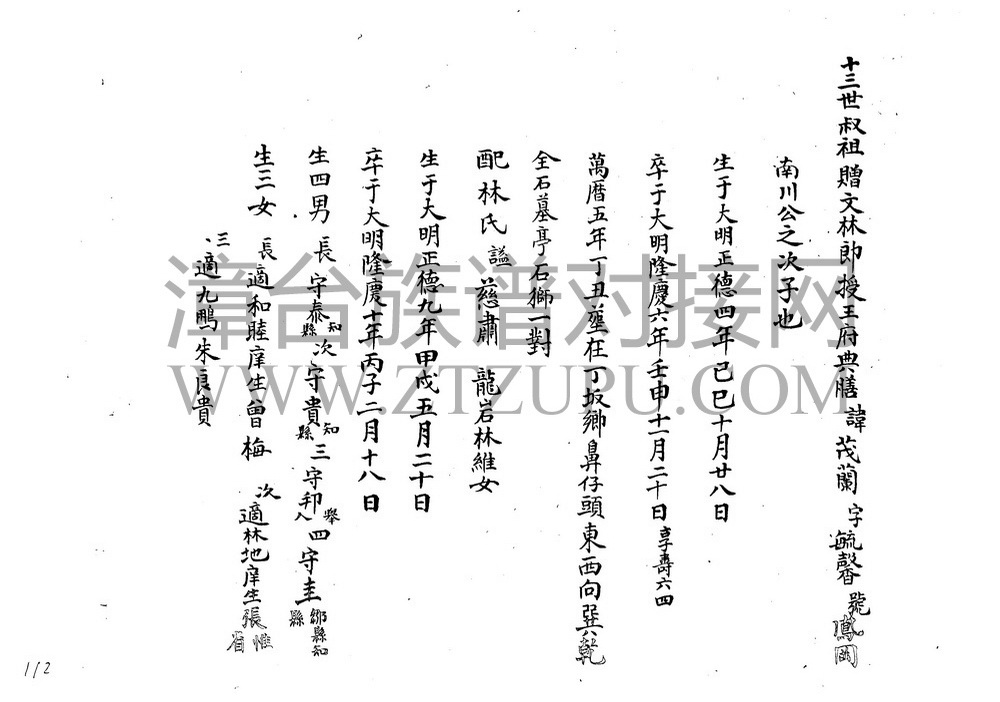 十三世叔祖贈文林郎授王府典膳諱茂蘭字毓馨號鳳岡
南川公之次子也
生于大明正德四年己巳十月廿八日
卒于大明隆慶六年壬申十一月二十日享壽六四
萬曆五年丁丑塟在丁坂鄉鼻仔頭東西向巽乾
仝石墓亭石獅一對
配林氏諡慈肅龍岩林維女
生于大明正德九年甲戌五月二十日
卒于大明隆慶十年丙子二月十八日
生四男長守泰知縣次守貴知縣三守邦舉人四守圭鄉縣知縣
生三女長適和睦庠生曾梅次適林地庠生張惟省
三適九鵬朱良貴
漳台族谱对接网
WWW.ZTZUPU.COM
112